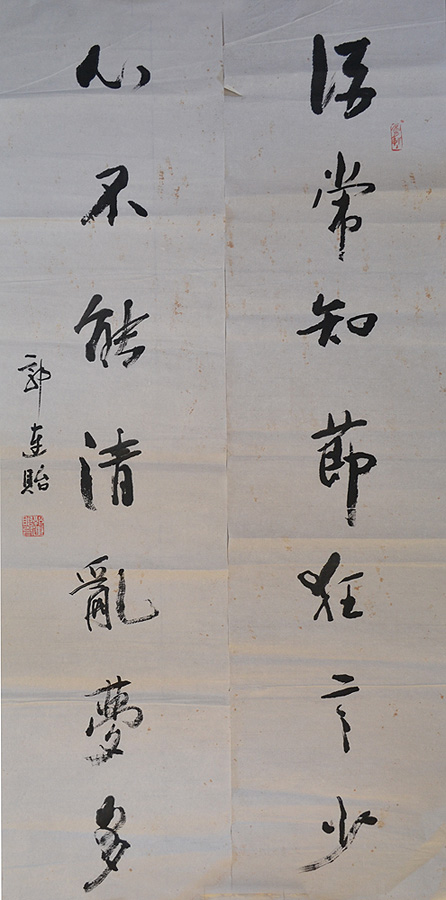 酒常知節狂言少
心不能清亂夢多
郭連貽